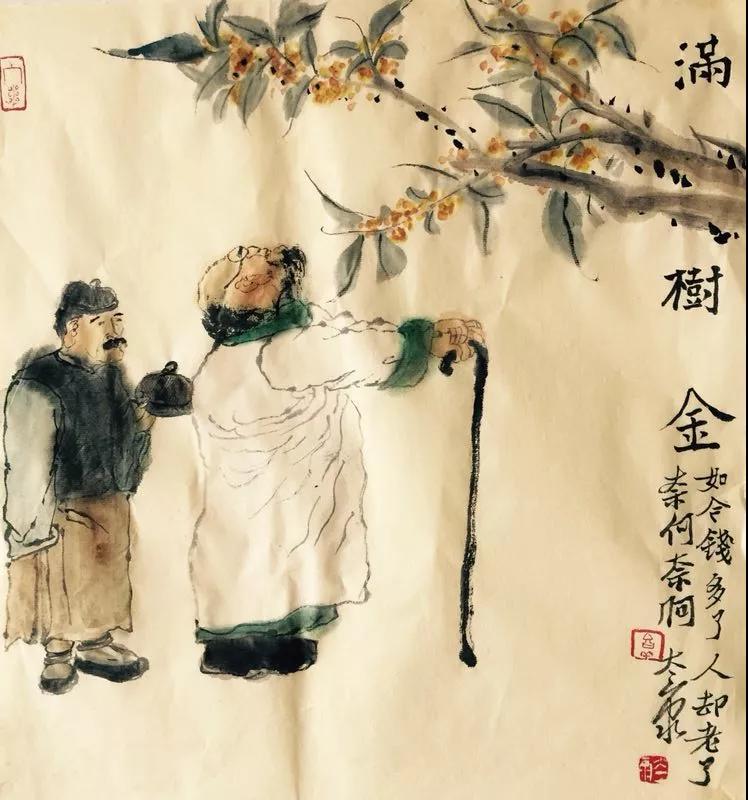 滿樹金
如今錢多了人却老了
奈何奈啊